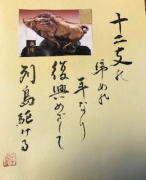 十二支の
締めは
亥なり
復興めざして
列島駆ける